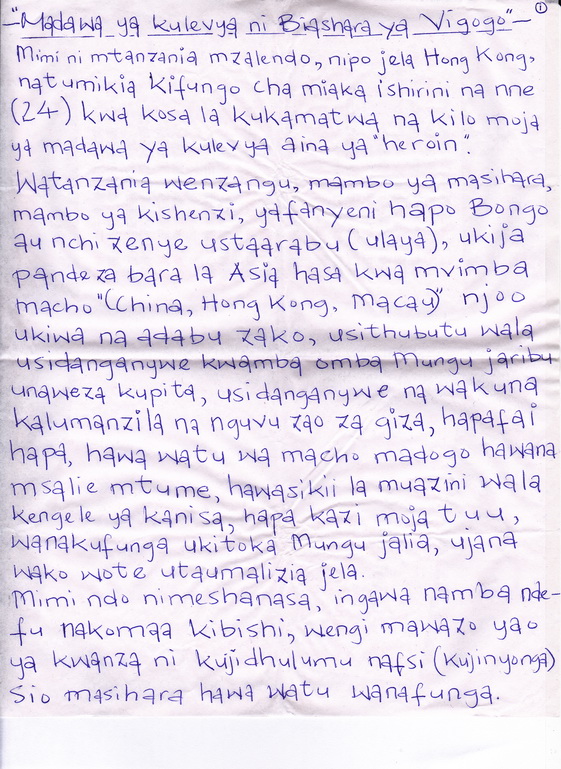 ①
-"Madawa ya kulevya ni Biashara ya Vigogo"-
Mimi ni mtanzania mzalendo, nipo jela Hong Kong,
natumikia kifungo cha miaka ishirini na nne
(24) kwa kosa la kukamatwa na kilo moja
ya madawa ya kulevya aina ya "heroin".
Watanzania wenzangu, mambo ya masihara,
mambo ya kishenzi, yafanyeni hapo Bongo
au nchi zenye ustaarabu (ulaya), ukija
pande za bara la Asia hasa kwa mvimba
macho "(China, Hong Kong, Macau)" njoo
ukiwa na adabu zako, usithubutu wala
usidanganywe kwamba omba Mungu jaribu
unaweza kupita, usidanganywe na wakuna
kalumanzila na nguvu zao za giza, hapafai
hapa, hawa watu wa macho madogo hawana
msalie mtume, hawasikii la muazini wala
kengele ya kanisa, hapa kazi moja tuu,
wanakufunga ukitoka Mungu jalia, ujana
wako wote utaumalizia jela.
Mimi ndo nimeshanasa, ingawa namba nde-
fu nakomaa kibishi, wengi mawazo yao
ya kwanza ni kujidhulumu nafsi (kujinyonga)
sio masihara hawa watu wanafunga.